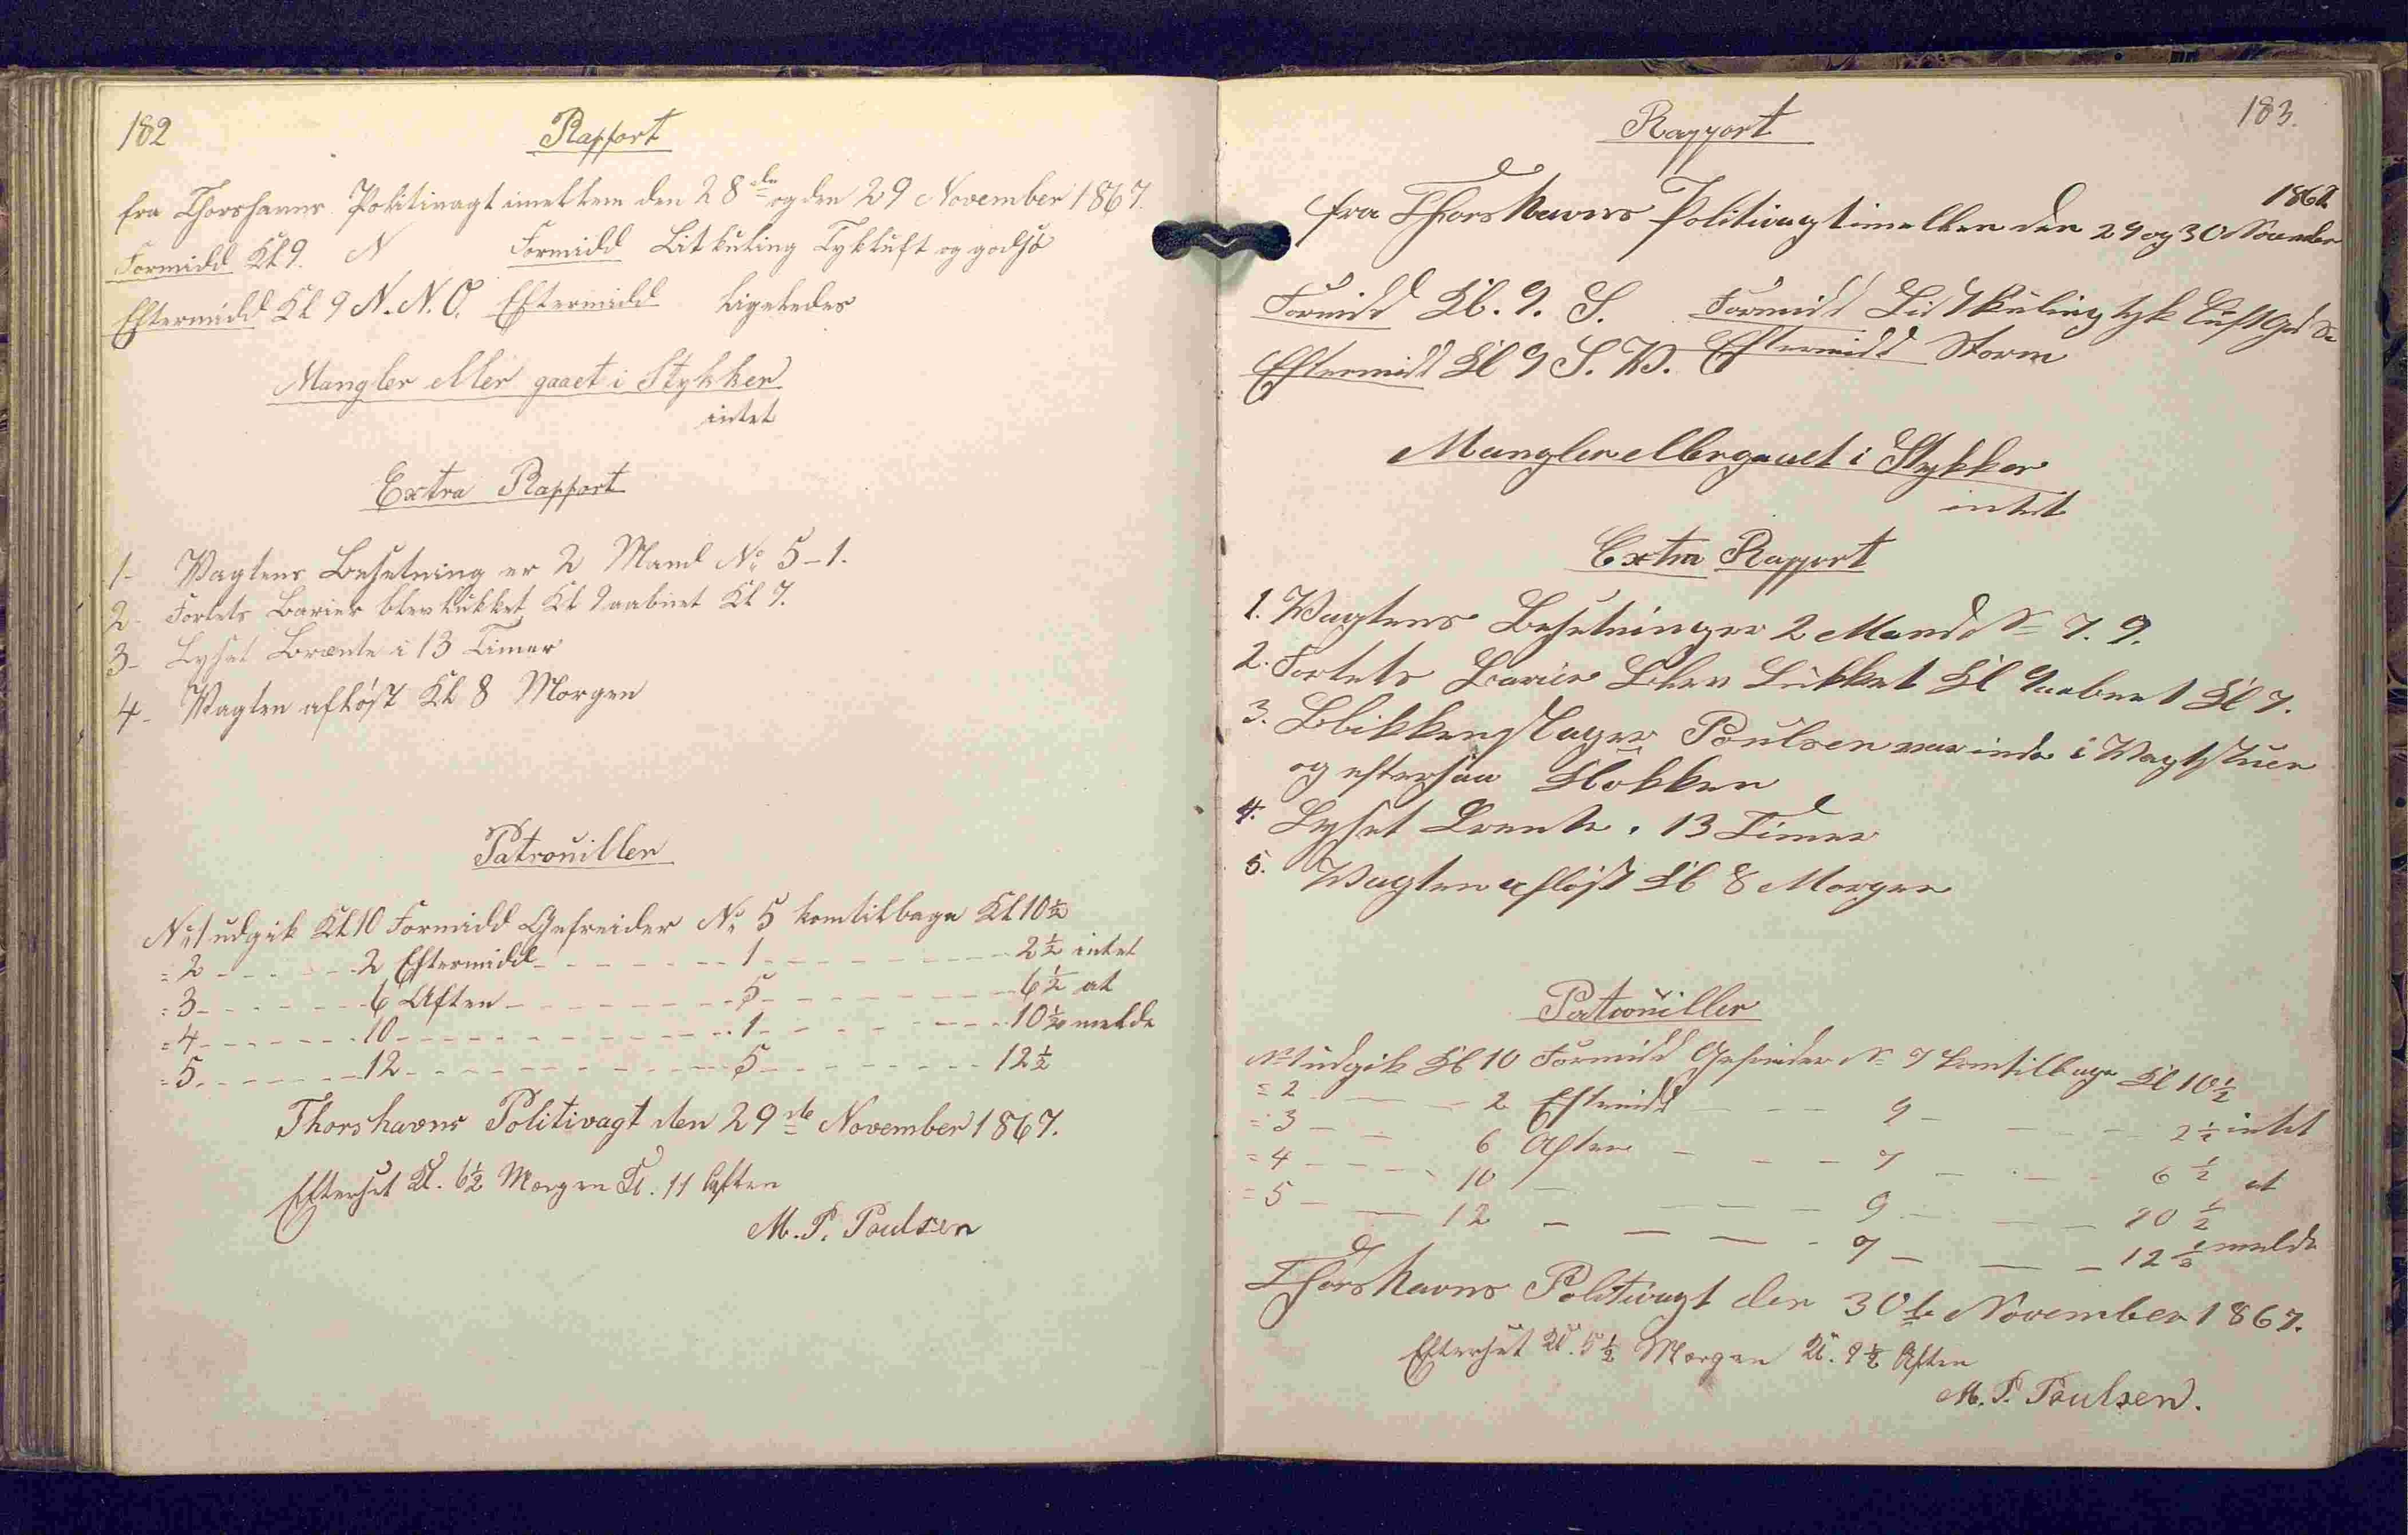 182
Rapport
fra Thorshavns Politivagt imellem den 28de og den 29 November 1867.
Formidd Kl 9. N Formidd Litkuling Tykluft og godsø
Eftermidd Kl 9 N.N.O. Eftermidd Ligeledes
Mangler eller gaaet i Stykker
intet
Extra Rapport
1- Vagtens Besetning er 2 Mand No 5-1.
2- Fortets Barier blev lukket Kl 9 aabnet Kl 7.
3- Lyset Brænte i 13 Timer
4- Vagten afløst Kl 8 Morgen
Patrouiller
No 1 udgik Kl 10 Formidd Gefreider No 5 kom tilbage Kl 10½
=2 - - - - - - 2 Eftermidd - - - - - - 1 - - - - - - - 2½ intet
=3 - - - - - - 6 Aften - - - - - - - 5 - - - - - - - 6½ at
=4 - - - - - - 10 - - - - - - - - - - 1 - - - - - - - 10½ melde
=5 - - - - - - 12 - - - - - - - - - - 5 - - - - - - - 12½
Thorshavns Politivagt den 29de November 1867.
Efterset Kl. 6½ Morgen Kl. 11 Aften
M. P. Poulsen
183.
Rapport
1867
fra Thorshavns Politivagt imellem den 29 og 30 November
Formidd Kl. 9. S. Formidd Lidtkuling tyk Luft God Sø
Eftermidd Kl 9 S.V. Eftermidd Storm
Mangler eller gaaet i Stykker
intet
Extra Rapport
1. Vagtens Besetning er 2 Mand No 7. 9.
2. Fortets Barier Blev Lukket Kl 9 aabnet Kl 7.
3. Blikkenslager Poulsen var inde i Vagtstuen
og eftersaa Klokken
4. Lyset Brente . 13 Timer
5. Vagten afløst Kl 8 Morgen
Patrouiller
No 1 udgik Kl 10 Formidd Gefreider No 7 kom tilbage Kl 10½
=2 - - - 2 Eftmidd - - - 9 - - - - 2½ intet
=3 - - - 6 Aften - - - 7 - - - - 6½ at
=4 - - - - 10 - - - - 9 - - - - 10½
=5 - - - 12 - - - - 7 - - - 12½ melde
Thorshavns Politivagt den 30te November 1867.
Efterset Kl. 5½ Morgen Kl. 9½ Aften
M. P. Poulsen.